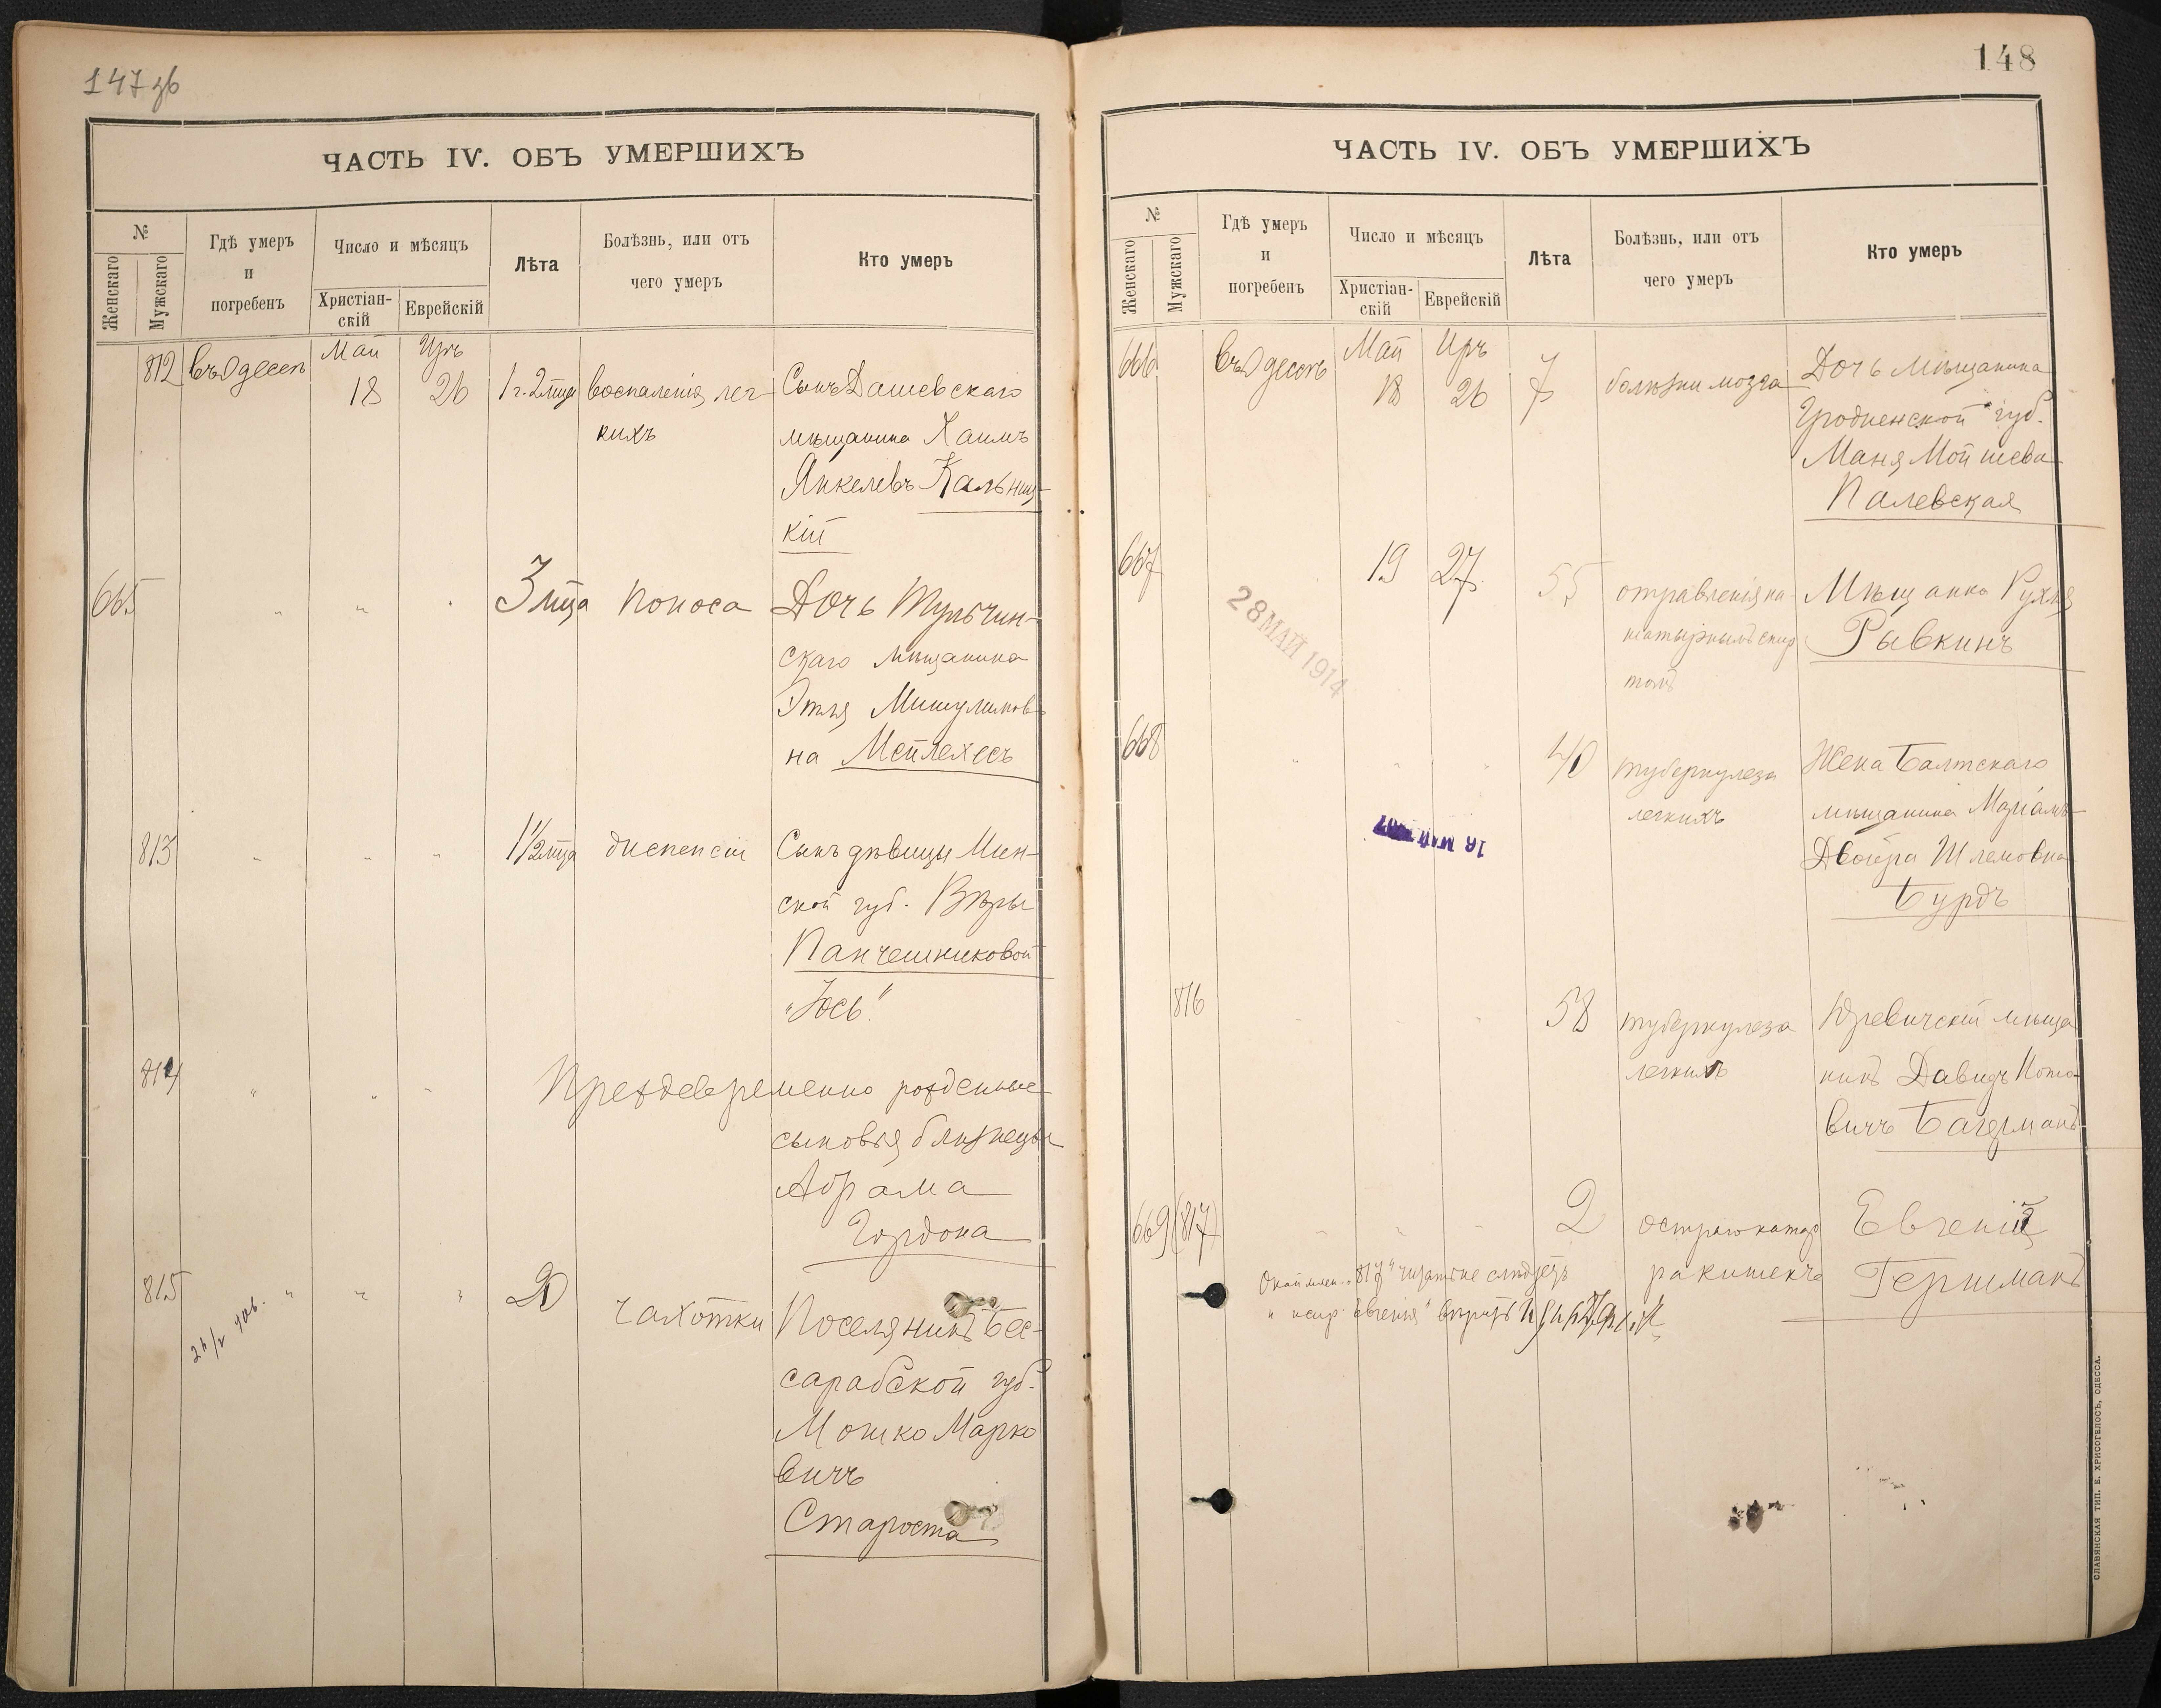 147 об
ЧАСТЬ IV. ОБЪ УМЕРШИХЪ
№
Женскаго
Мужскаго
Гдѣ умеръ
и
погребенъ
Число и мѣсяцъ
Христіан-
скій
Еврейскій
Лѣта
Болѣзнь, или отъ
чего умеръ
Кто умеръ
812 въ Одессѣ Май 18 Иръ 26 1 г. 2 мца воспаленія лег-
кихъ
Сынъ Дашевскаго
мѣщанина Хаимъ
Янкелевъ Кальниц-
кій
665 " " " 3 мца поноса Дочь Тульчин-
скаго мѣщанина
Этля Мишулимов-
на Мейлехесъ
813 " " " 1½ мца диспепсіи Сынъ дѣвицы Мин-
ской губ. Вѣры
Панчешниковой
"Юсь"
814 " " " Преждевременно рожденные
сыновья близнецы
Абрама
Гордона
815 " " " 20 чахотки Поселянинъ Бес-
сарабской губ.
Мошко Марко
вичъ
Староста
148
ЧАСТЬ IV. ОБЪ УМЕРШИХЪ
№
Женскаго
Мужскаго
Гдѣ умеръ
и
погребенъ
Число и мѣсяцъ
Христіан-
скій
Еврейскій
Лѣта
Болѣзнь, или отъ
чего умеръ
Кто умеръ
666 въ Одессѣ Май 18 Иръ 26 7 болѣзни мозга Дочь мѣщанина
Гродненской губ.
Маня Мойшева
Палевская
667 19 27 55 отравленія на-
шатырнымъ спир
томъ
Мѣщанка Рухля
Рывкинъ
28 МАЙ 1914
668 " " " 40 туберкулеза
легкихъ
Жена Балтскаго
мѣщанина Маріамъ-
Двойра Шлемовна
Бурдъ
816 " " " 58 туберкулеза
легкихъ
Юревичскій мѣща
нинъ Давидъ
вичъ Багерманъ
669 (817) " " " 2 остраго катар
ра кишекъ
Евгенія
Гершманъ
"817" читать не слѣдуетъ
СЛАВЯНСКАЯ ТИП. Е. ХРИСОГЕЛОСЪ, ОДЕССА.